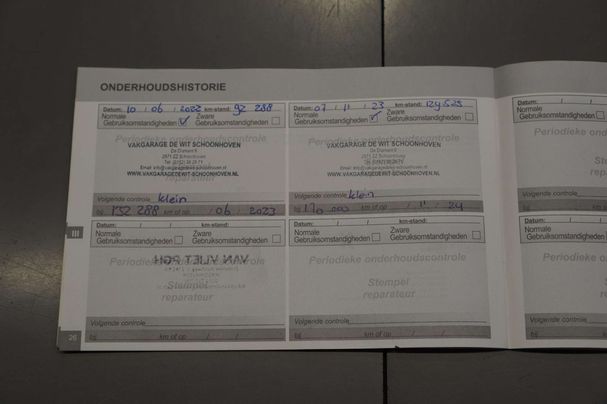 ONDERHOUDSHISTORIE
Datum: 10 / 06 / 2022 km-stand: 92 288
Normale Gebruiksomstandigheden Zware Gebruiksomstandigheden
Periodieke onderhoudscontrole
VAKGARAGE DE WIT SCHOONHOVEN
WWW.VAKGARAGEDEWIT-SCHOONHOVEN.NL
reparateur
Volgende controle klein
bij 152 288 km of op / 06 / 2023
Datum: 07 / 11 / 23 km-stand: 129 525
Normale Gebruiksomstandigheden Zware Gebruiksomstandigheden
Periodieke onderhoudscontrole
VAKGARAGE DE WIT SCHOONHOVEN
WWW.VAKGARAGEDEWIT-SCHOONHOVEN.NL
reparateur
Volgende controle klein
bij 170 000 km of op / 11 / 24
III
Datum: / / km-stand:
Normale Gebruiksomstandigheden Zware Gebruiksomstandigheden
Periodieke onderhoudscontrole
VAN VLIET
Stempel
reparateur
Volgende controle
bij km of op / /
Datum: / / km-stand:
Normale Gebruiksomstandigheden Zware Gebruiksomstandigheden
Periodieke onderhoudscontrole
Stempel
reparateur
Volgende controle
bij km of op / /
26
Datum:
Normale
Gebruiksomstandigh
Periodiek
Volgende controle
bij
Datum:
Normale
Gebruiksomstandigh
Periodie
Volgende controle
bij